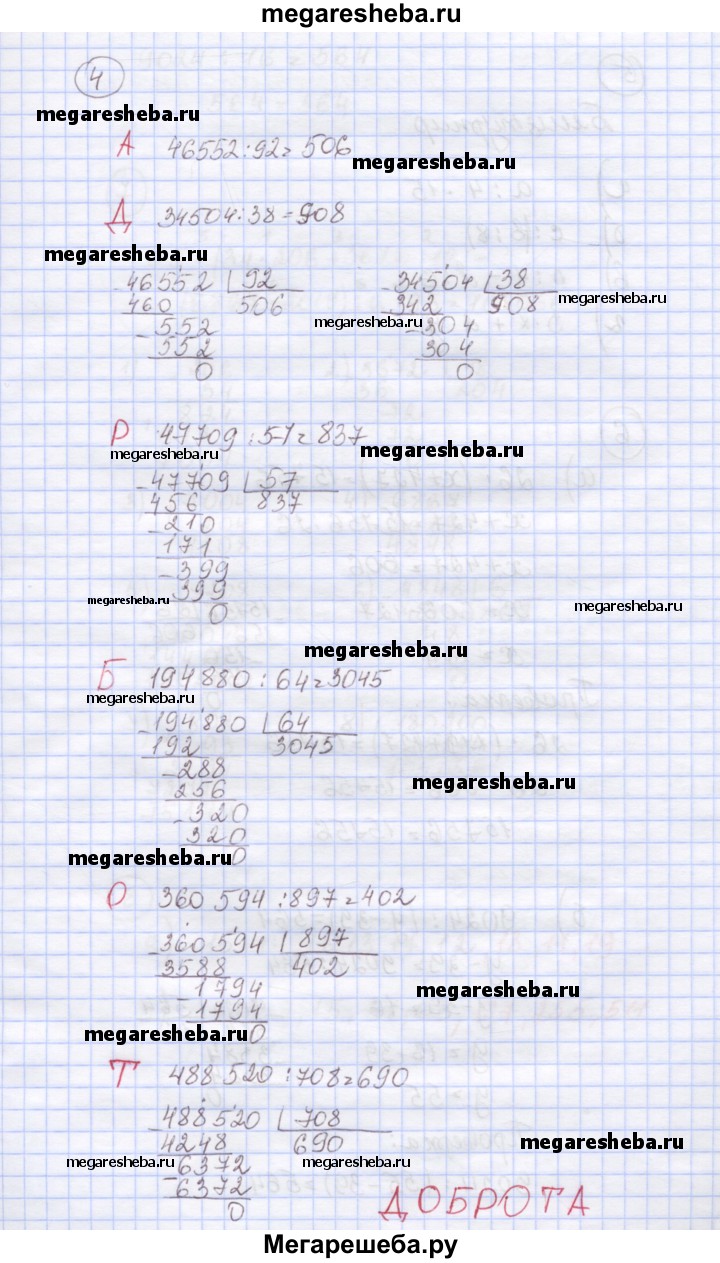 megaresheba.ru
4
megaresheba.ru
А 46552:92=506
megaresheba.ru
Д 34504:38=908
megaresheba.ru
46552 92
460 506
552
552
0
34504 38
342 908
304
304
0
megaresheba.ru
megaresheba.ru
Р 47709:57=837
megaresheba.ru
megaresheba.ru
47709 57
456 837
210
171
399
399
0
megaresheba.ru
megaresheba.ru
megaresheba.ru
Б 194880:64=3045
megaresheba.ru
194880 64
192 3045
288
256
320
320
0
megaresheba.ru
megaresheba.ru
О 360 594:897=402
360 594 897
3588 402
1794
1794
0
megaresheba.ru
megaresheba.ru
Т 488 520:708=690
488520 708
4248 690
6372
6372
0
megaresheba.ru
megaresheba.ru
megaresheba.ru
ДОБРОТА
Мегарешеба.ру